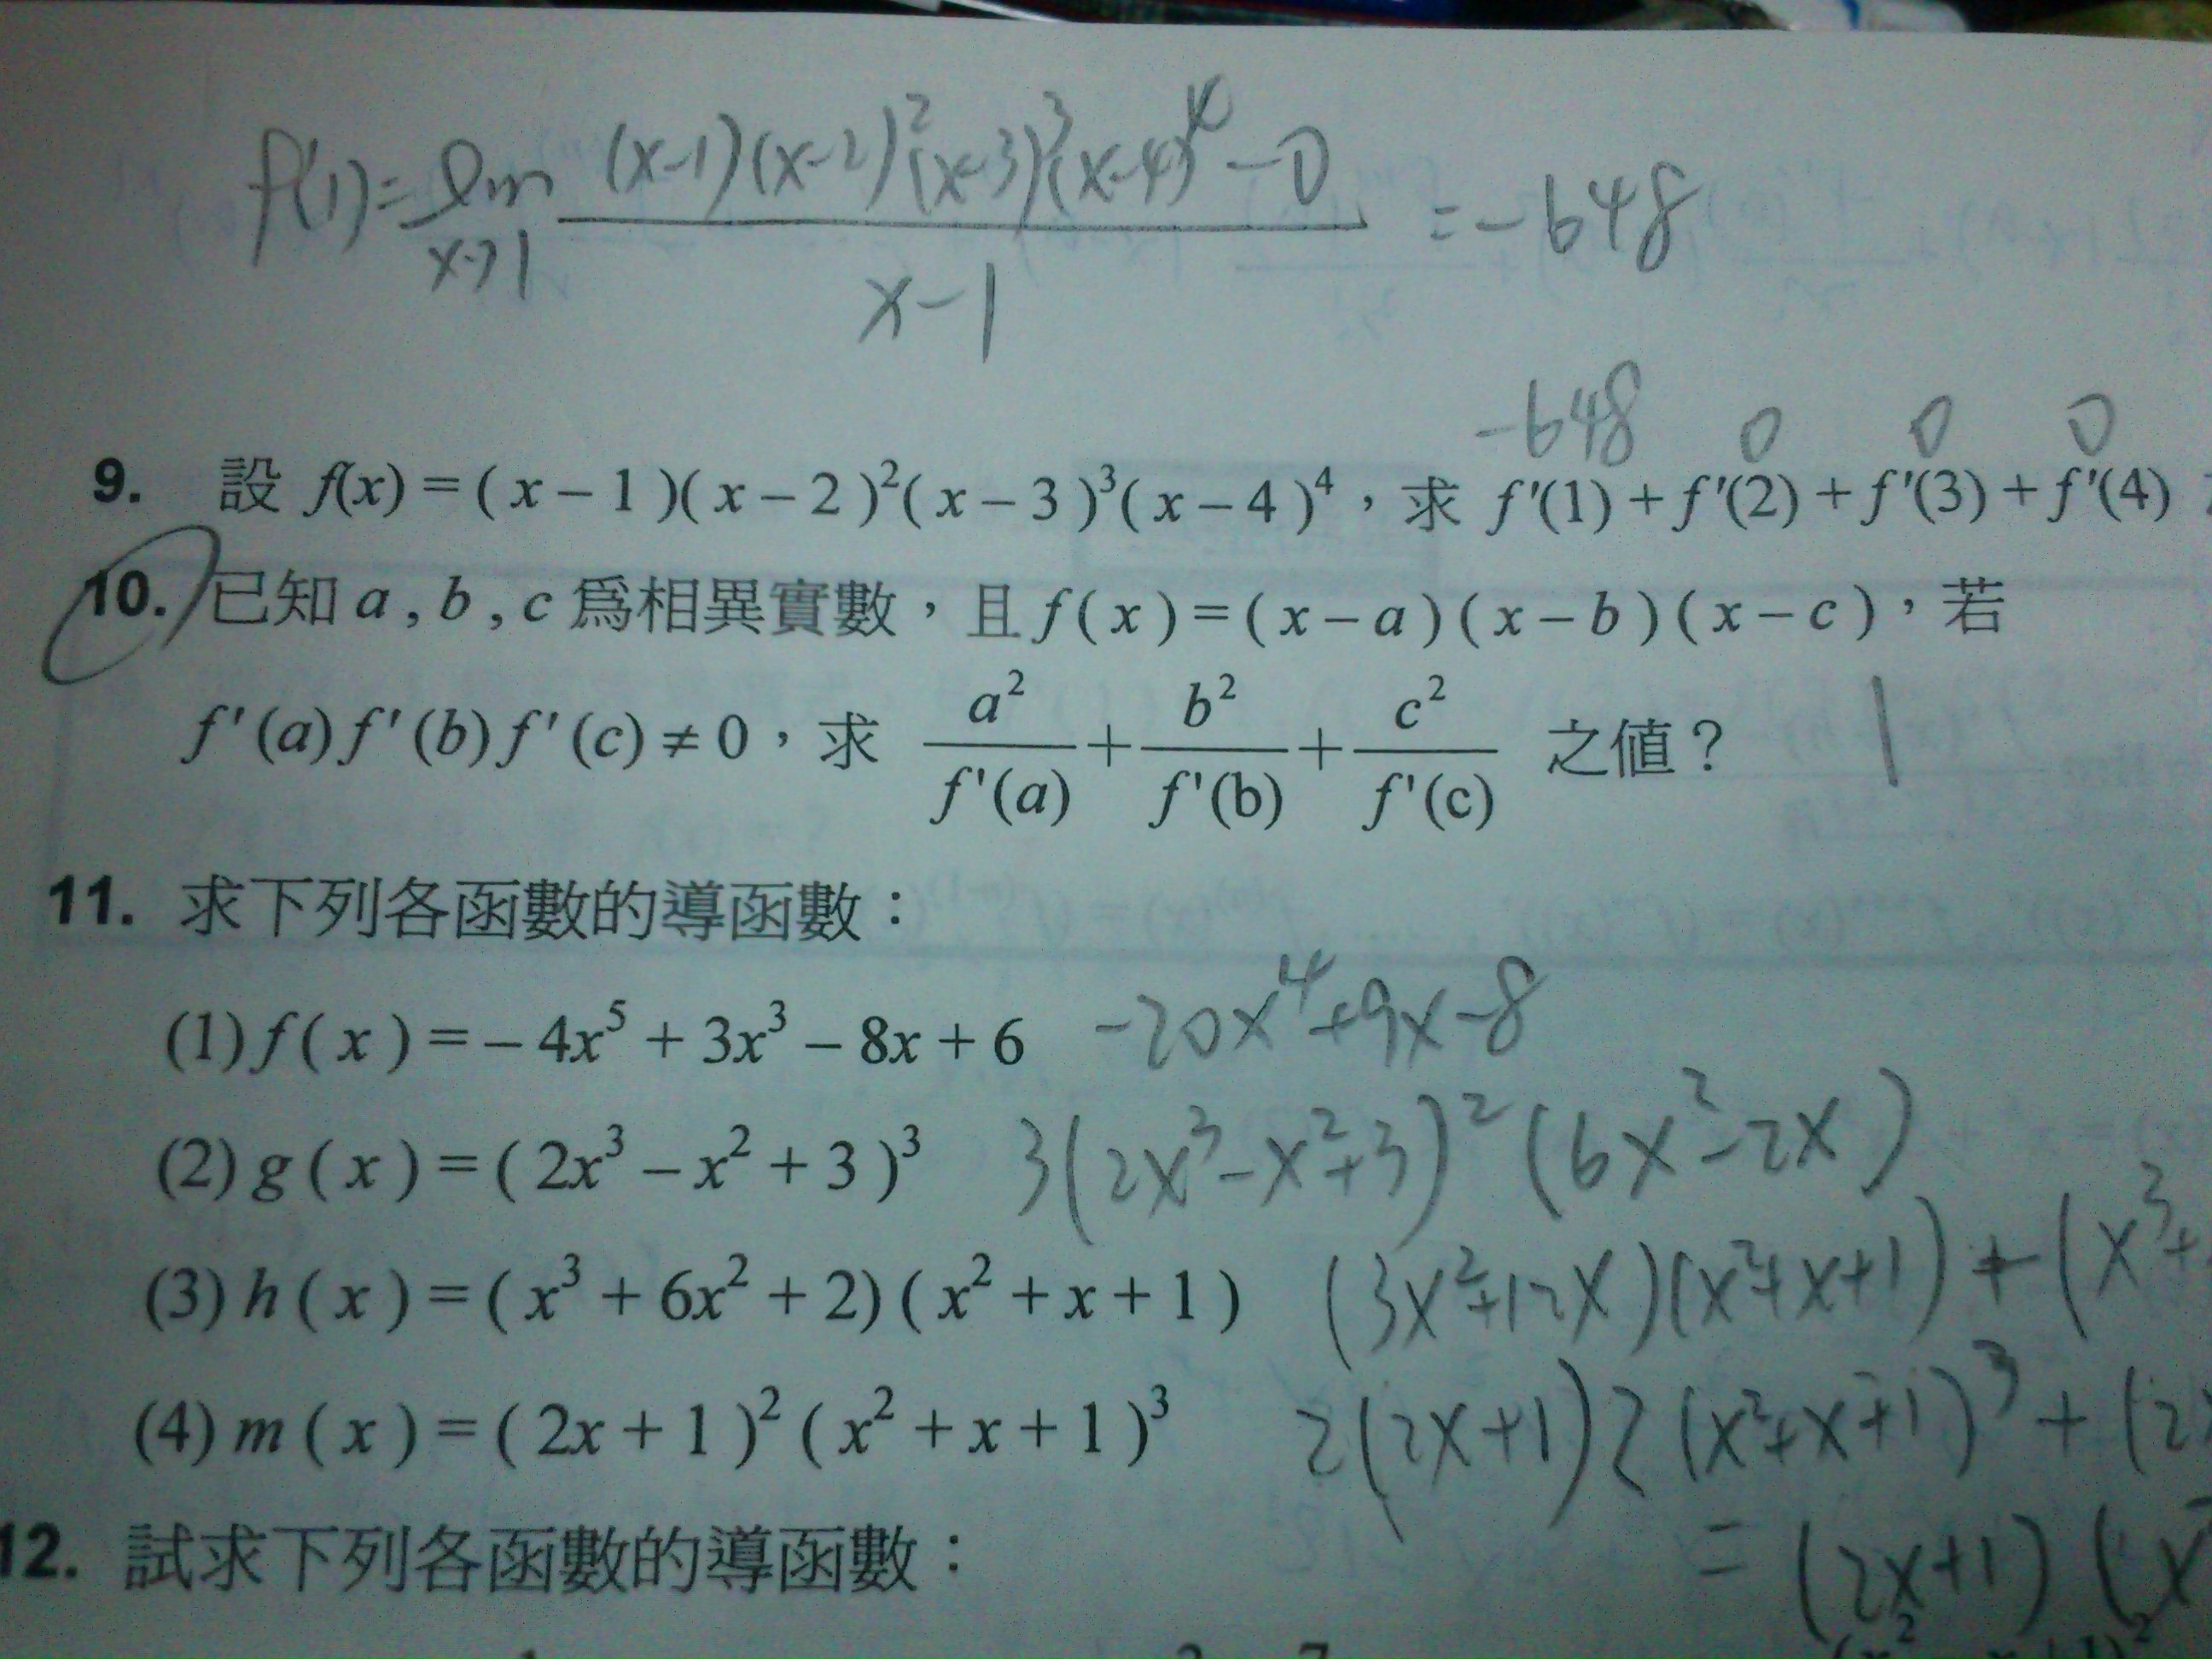 f'(1)=lim x→1 (x-1)(x-2)²(x-3)³(x-4)⁴-0 / x-1 =-648
-648 0 0 0
9. 設 f(x)=(x-1)(x-2)²(x-3)³(x-4)⁴，求 f'(1)+f'(2)+f'(3)+f'(4)
10. 已知 a,b,c 爲相異實數，且 f(x)=(x-a)(x-b)(x-c)，若
f'(a)f'(b)f'(c)≠0，求 a²/f'(a)+b²/f'(b)+c²/f'(c) 之値？ 1
11. 求下列各函數的導函數：
(1) f(x)=-4x⁵+3x³-8x+6 -20x⁴+9x-8
(2) g(x)=(2x³-x²+3)³ 3(2x³-x²+3)²(6x²-2x)
(3) h(x)=(x³+6x²+2)(x²+x+1) (3x²+12x)(x²+x+1)+(x³+
(4) m(x)=(2x+1)²(x²+x+1)³ 2(2x+1)2(x²+x+1)³+(2x
=(2x+1)(x
12. 試求下列各函數的導函數：